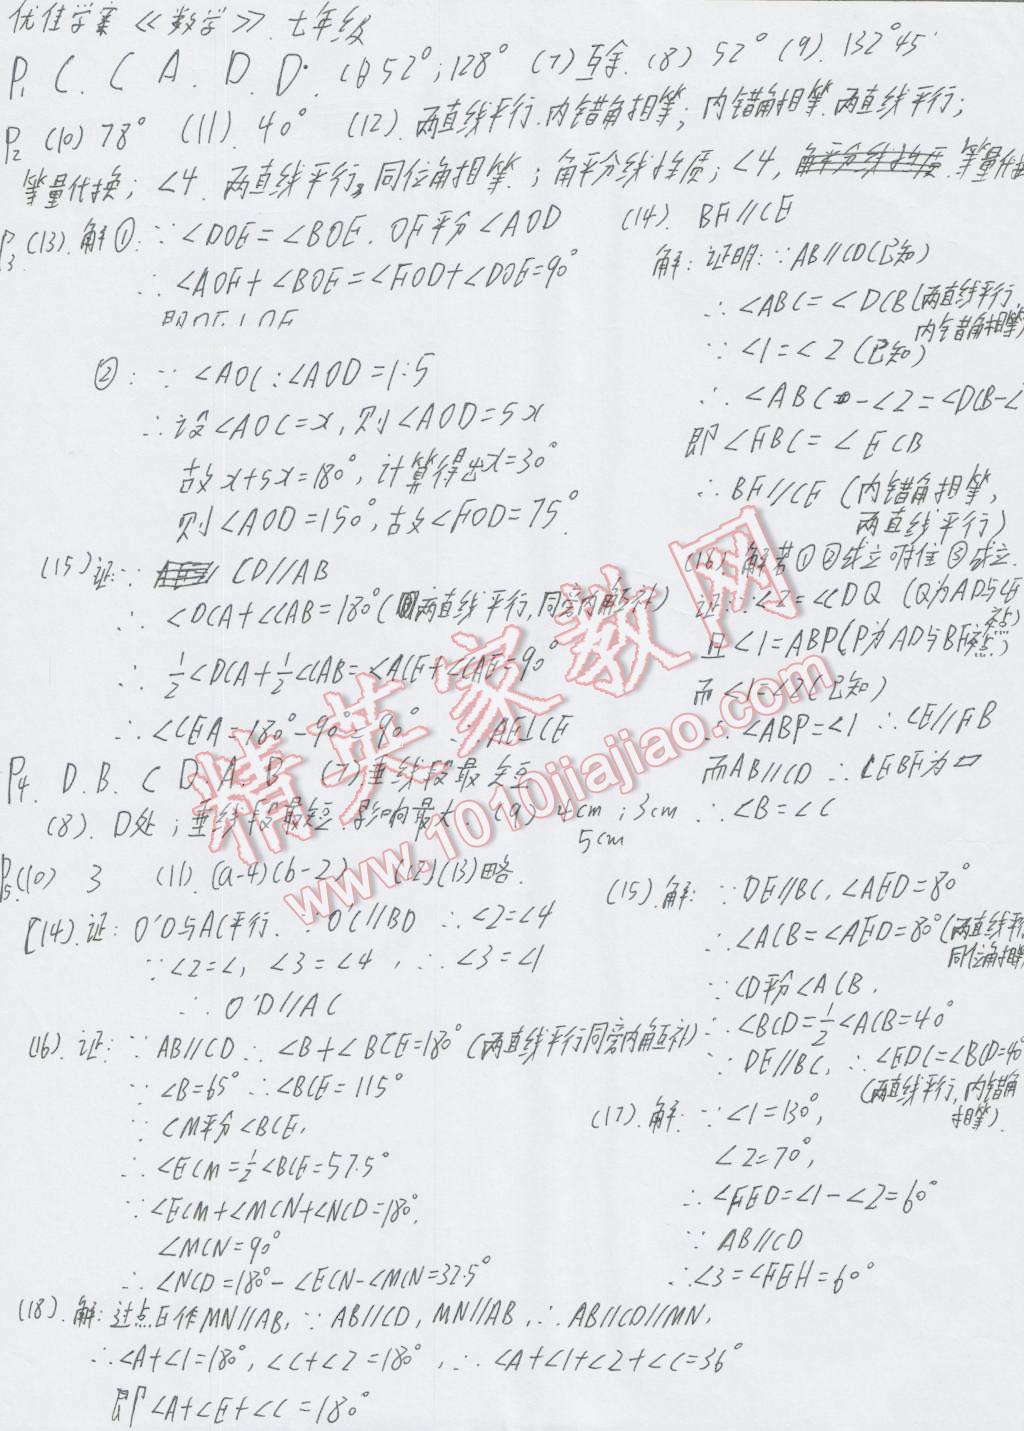 优佳学案《数学》七年级
P1 C. C A. D. D. (6) 52°; 128° (7) 互余. (8) 52° (9). 132°45′
P2 (10) 78° (11). 40° (12). 两直线平行.内错角相等; 内错角相等.两直线平行;
等量代换; ∠4. 两直线平行, 同位角相等.; 角平分线性质; ∠4, 等量代换
P3 (13). 解①: ∵ ∠DOE=∠BOE. OF平分∠AOD
∴ ∠AOF+∠BOE=∠FOD+∠DOE=90°
②: ∵ ∠AOC:∠AOD=1:5
∴设∠AOC=x, 则∠AOD=5x
故x+5x=180°, 计算得出x=30°
则∠AOD=150°, 故∠FOD=75°.
(14). BF//CE
解: 证明: ∵AB//CD(已知)
∴ ∠ABC=∠DCB(两直线平行,
内错角相等)
∵ ∠1=∠2(已知)
∴ ∠ABC-∠2=∠DCB-∠
即∠FBC=∠ECB
∴ BF//CE (内错角相等,
两直线平行)
(15)证: ∵ CD//AB
∴ ∠DCA+∠CAB=180°(两直线平行,同旁内角互补)
∴ ½∠DCA+½∠CAB=∠ACE+∠CAE=90°
∴ ∠CEA=180°-90°=90° ∴ AE⊥CE
(16). 解若①②成立可推③成立.
证: ∵∠2=∠CDQ (Q为AD与CE
交点)
且∠1=ABP(P为AD与BF交点)
而∠1=∠2(已知)
∴ ∠ABP=∠1 ∴CE//FB
而AB//CD ∴CEBF为▱
∴ ∠B=∠C
P4. D. B. C D. A. B (7)垂线段最短
(8). D处; 垂线段最短.影响最大. (9) 4cm; 3cm
5cm
P5(10) 3 (11). (a-4)(b-2) (12)(13)略.
(14). 证: O′D与AC平行. ∵O′C//BD ∴∠2=∠4
∵∠2=∠1, ∠3=∠4, ∴∠3=∠1
∴ O′D//AC
(15). 解: ∵ DE//BC, ∠AED=80°
∴ ∠ACB=∠AED=80°(两直线平行
同位角相等
∵ CD平分∠ACB.
∴ ∠BCD=½∠ACB=40°
∵ DE//BC, ∴ ∠EDC=∠BCD=40°
(两直线平行,内错角
相等).
(16). 证: ∵ AB//CD ∴ ∠B+∠BCE=180°(两直线平行同旁内角互补)
∵ ∠B=65° ∴∠BCE=115°
∵ CM平分∠BCE,
∴ ∠ECM=½∠BCE=57.5°
∵∠ECM+∠MCN+∠NCD=180°,
∠MCN=90°
∴ ∠NCD=180°-∠ECN-∠MCN=32.5°
(17). 解: ∵∠1=130°,
∠2=70°,
∴ ∠FED=∠1-∠2=60°
∵ AB//CD
∴∠3=∠FEH=60°
(18). 解: 过点E作MN//AB, ∵ AB//CD, MN//AB, ∴ AB//CD//MN,
∴∠A+∠1=180°, ∠C+∠2=180°, ∴ ∠A+∠1+∠2+∠C=36°
即∠A+∠E+∠C=180°
精英家教网
www.1010jiajiao.com